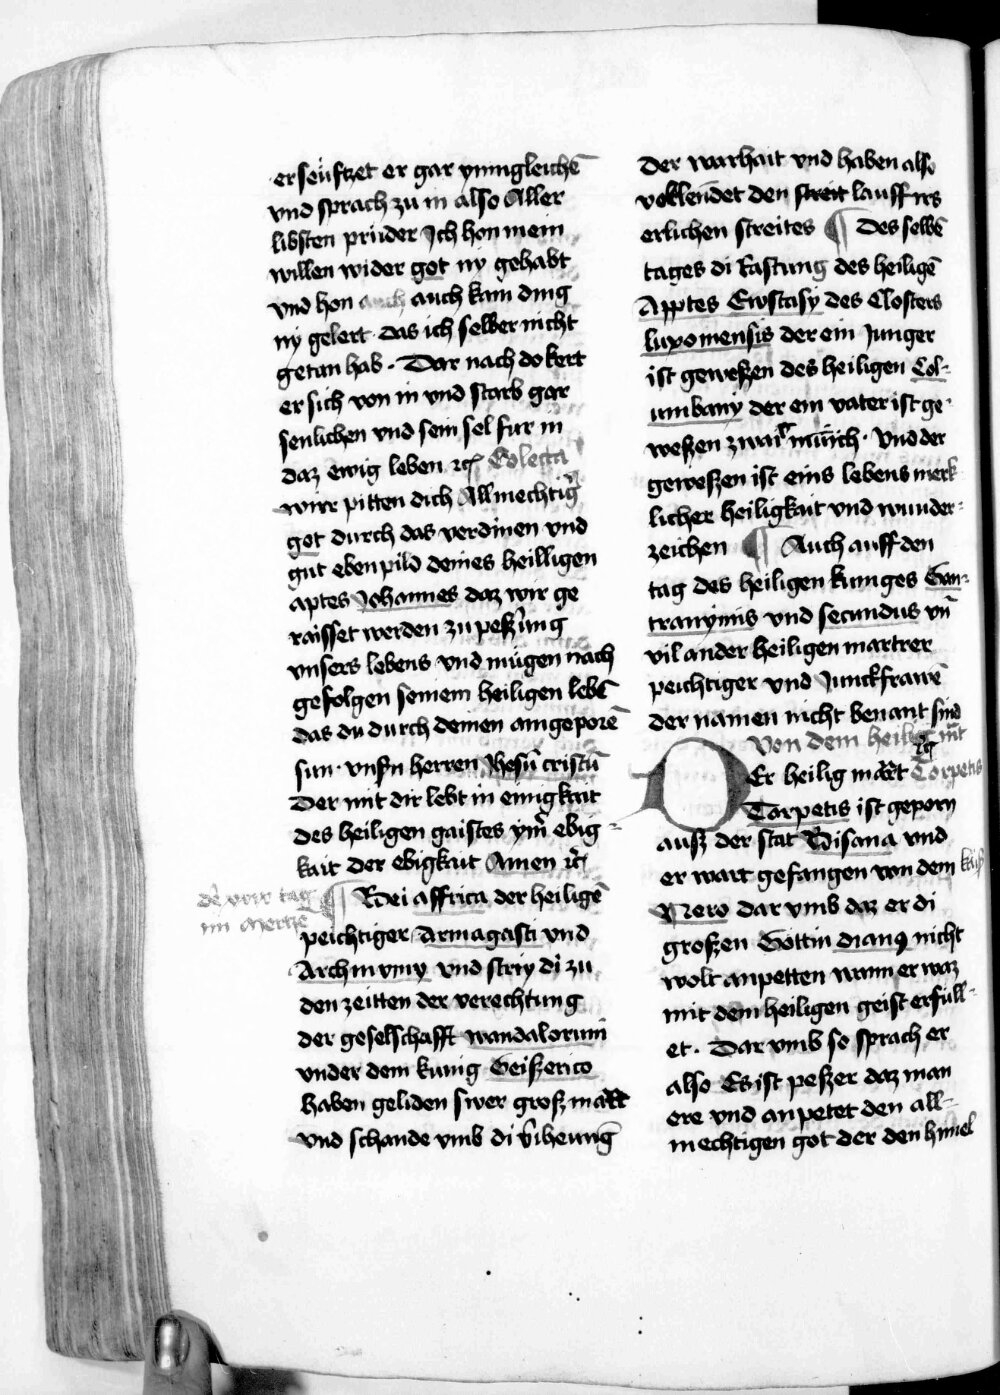 erseüftzet er gar ynnigleichē
vnd sprach zu in also Aller
libsten prüder Ich hon mein
willen wider got ny gehabt
vnd hon auch auch kain ding
ny gelert das ich selber nicht
getan hab · Dar nach do kert
er sich von in vnd starb gar
senlichen vnd sein sel fur in
daz ewig leben ꝛcꝭ Colecta
wirr pitten dich Allmechtigr̄
got durch das verdinen vnd
gut ebenpild deines heilligen
aptes Johannes daz wir ge
raisset werden zu peßr̄ung
vnsers lebens vnd mügen nach
gefolgen seinem heiligen lebē
das du durch deinen aingeporē
sun · vnsn̄ herren Jhesū cristū
Der mit dir lebt in einigkait
des heiligen gaistes ym̄ ebig=
kait der ebigkait Amen ꝛc̄
¶ Bei affrica der heiligē
peichtiger Armagasti vnd
Archinimy vnd striy di zu
den zeitten der verechtung
der geselschafft wandalorum
vnder dem kunig Geißerico
haben geliden swer groß mart̄
vnd schande vmb di v̄iheung
der warhait vnd haben also
vollendet den streit lauff irs
erlichen streites ¶ Des selbē
tages di Rastung des heiligē
Apptes Ewstasy des Closters
luxomensis der ein Junger
ist geweßen des heiligen Col=
umbany der ein vater ist ge=
weßen zwair münich · Vnd der
geweßen ist eins lebens merk
licher heiligkait vnd wunder=
zeichen ¶ Auch auff den
tag des heiligen kunges Gun=
tranymis vnd secundus vn̄
vil ander heiligen martrer
peichtiger vnd Junckfrawē
der namen nicht benant sind
Von dem heilig m̄t
DEr heilig mart̄ Torpetis
Tarpetis ist geporn
auß der stat Bisana vnd
er wart gefangen von dem kaiß
Nero dar vmb daz er di
großen Göttin dianꝯ nicht
wolt anpetten wann er waz
mit dem heiligen geist erfüll=
et · Dar vmb so sprach er
also Es ist peßer daz man
ere vnd anpetet den all=
mechtigen got der den himel